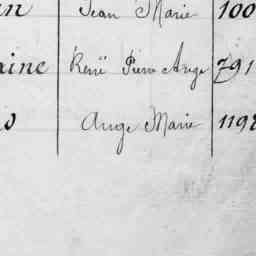 in Jean Marie 100
aine René Pierre Ange 791
s Ange Marie 1198